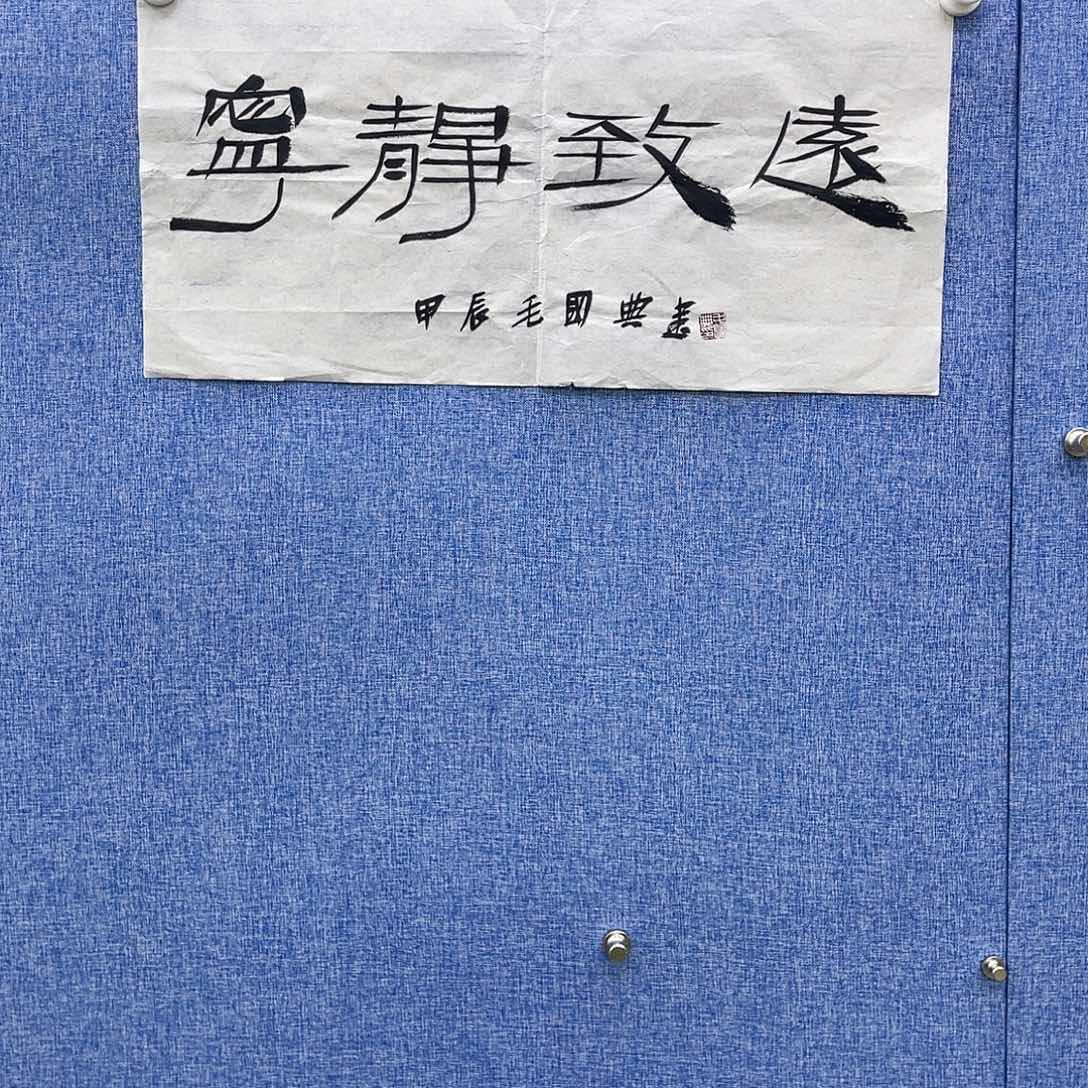 寧靜致遠
甲辰毛國典書